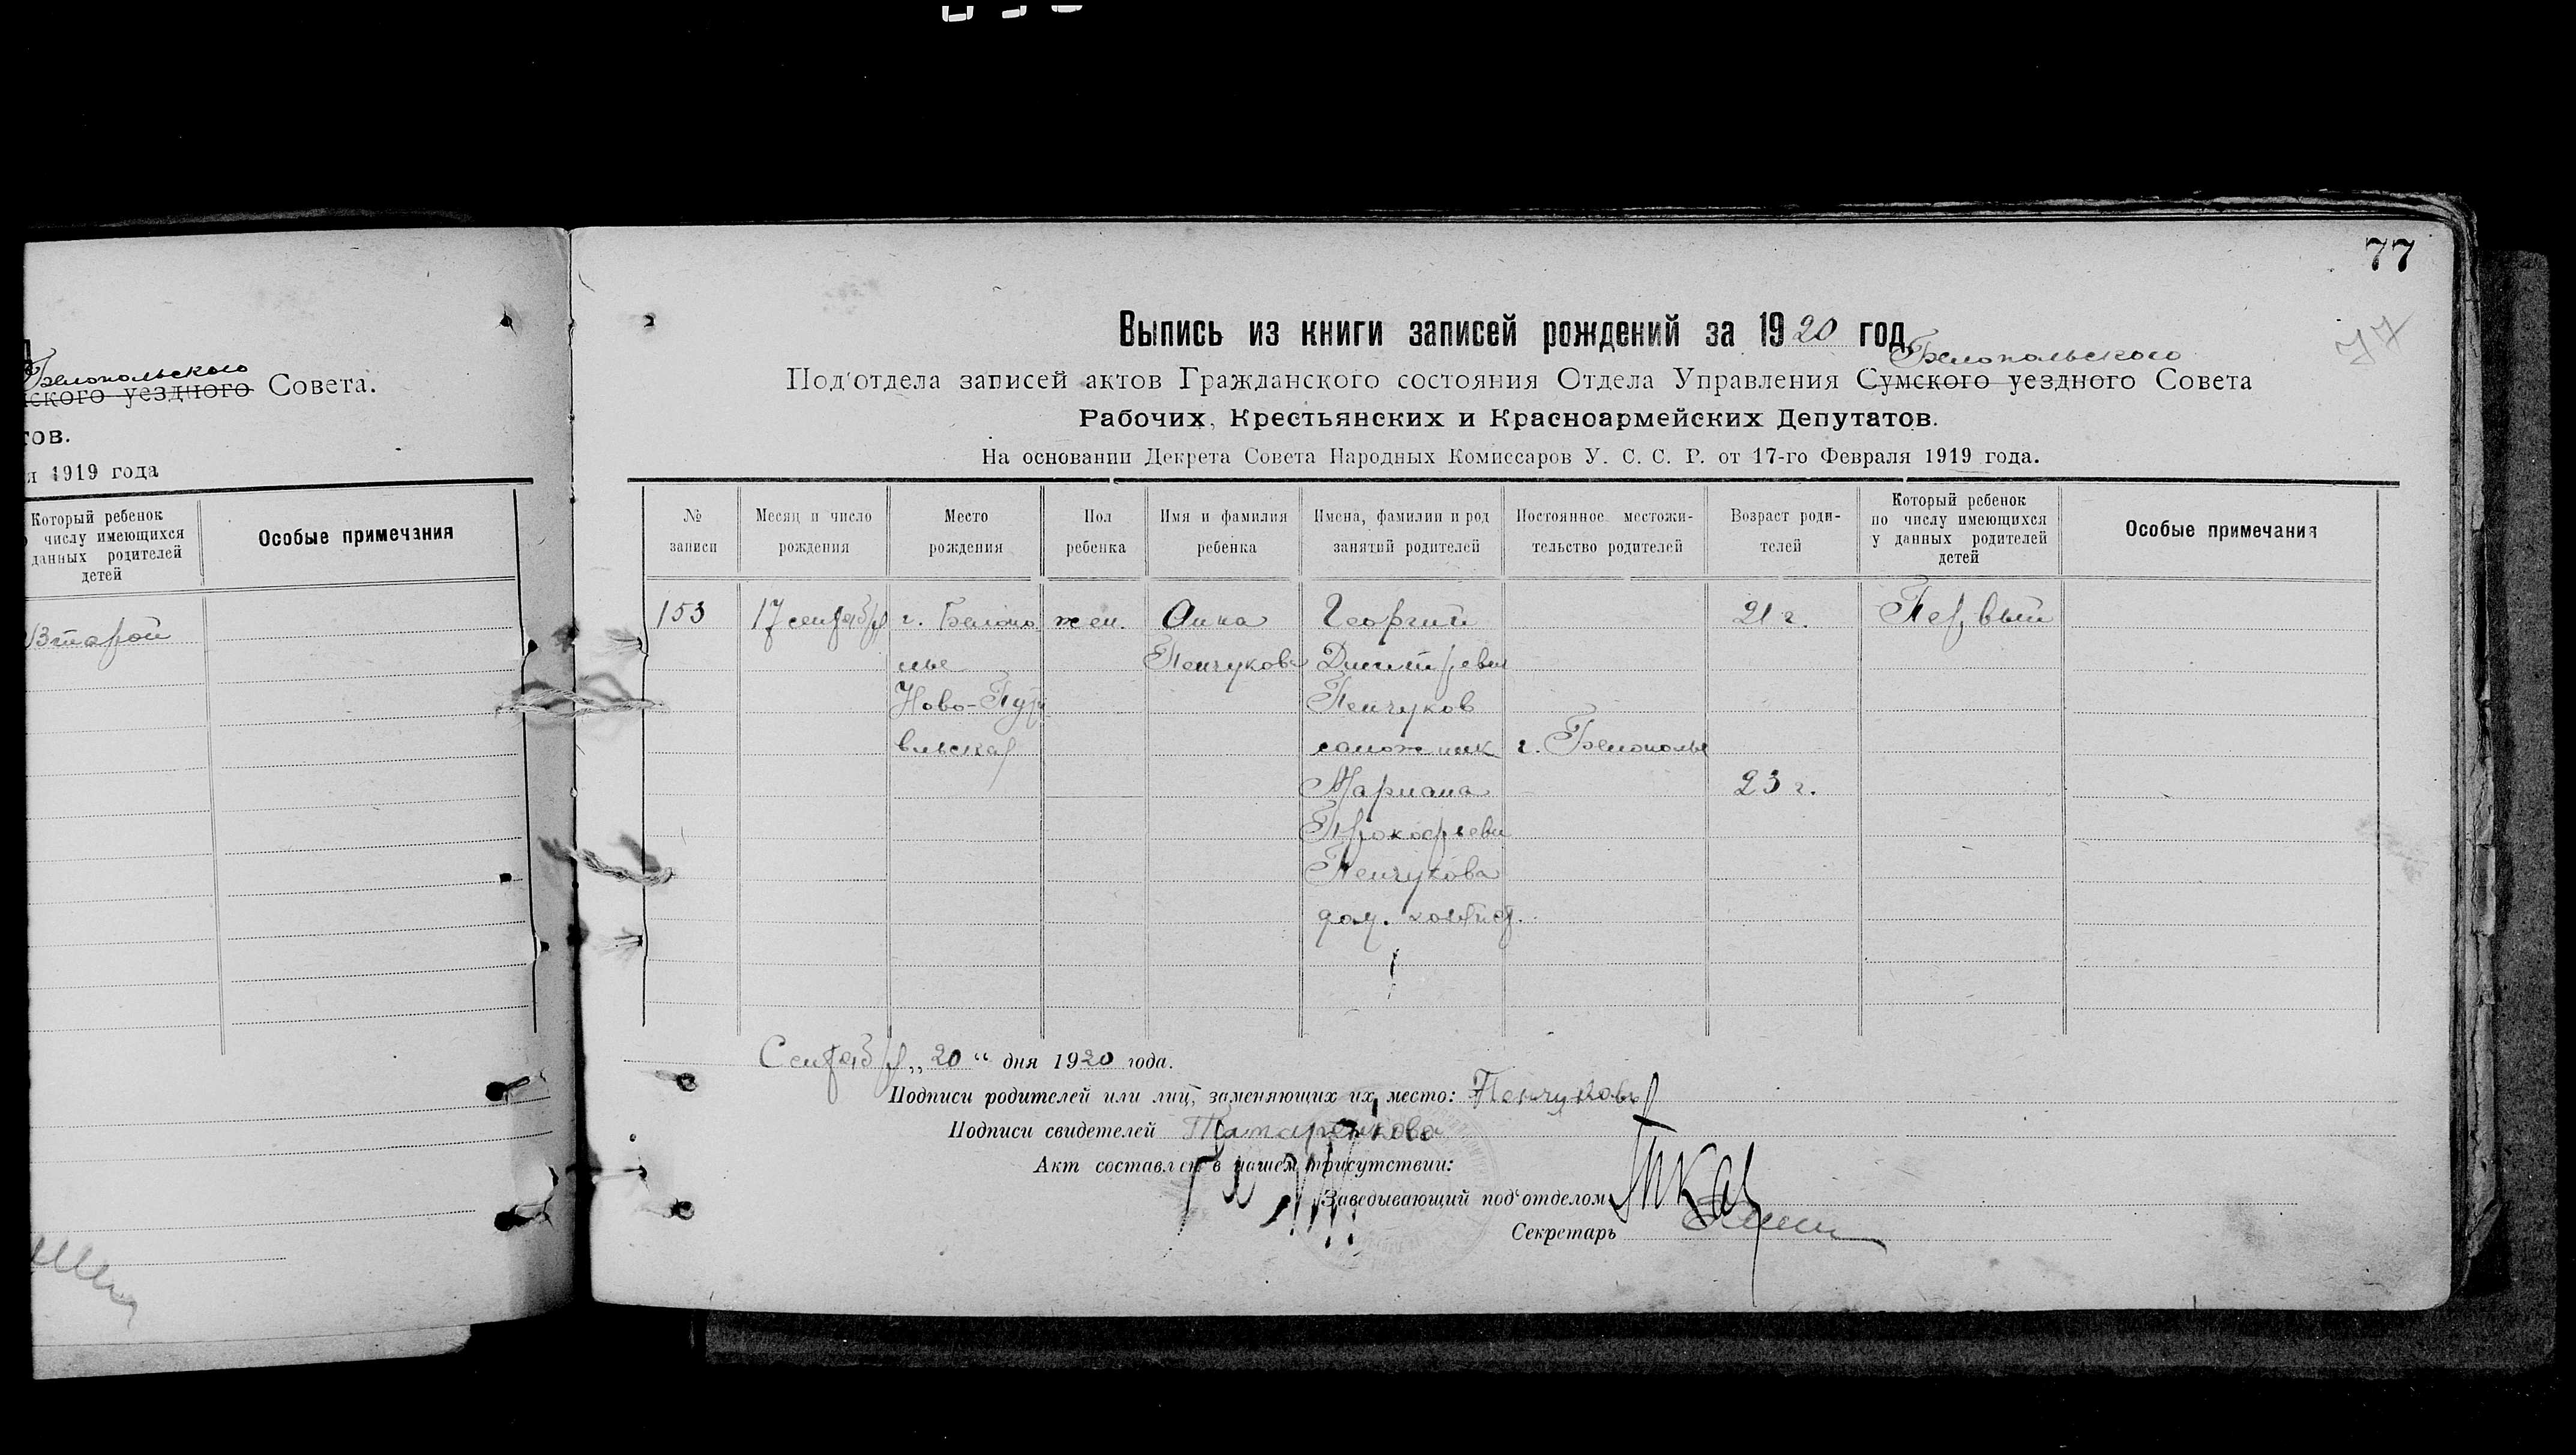 77
77
Белопольского
ского уездного Совета.
тов.
я 1919 года
Который ребенок
числу имеющихся
данных родителей
детей
Особые примечания
Второй
Выпись из книги записей рождений за 1920 год
Белопольского
Под'отдела записей актов Гражданского состояния Отдела Управления Сумского уездного Совета
Рабочих, Крестьянских и Красноармейских Депутатов.
На основании Декрета Совета Народных Комиссаров У. С. С. Р. от 17-го Февраля 1919 года.
№ записи
Месяц и число рождения
Место рождения
Пол ребенка
Имя и фамилия ребенка
Имена, фамилии и род занятий родителей
Постоянное местожительство родителей
Возраст родителей
Который ребенок по числу имеющихся у данных родителей детей
Особые примечания
153 17 сентября г. Белопо жен. Анна Георгий 21 г. Первый
лье Пенчукова Дмитревич
Ново-Пути Пенчуков
вльская сапожник г. Белополье
Мариана 23 г.
Прокофьевн
Пенчукова
дом. хозяист.
Сентября „20“ дня 1920 года.
Подписи родителей или лиц, заменяющих их место: Пенчуковъ
Подписи свидетелей Татаренкова
Акт составлен в нашем присутствии:
Заведывающий под'отделом
Секретарь